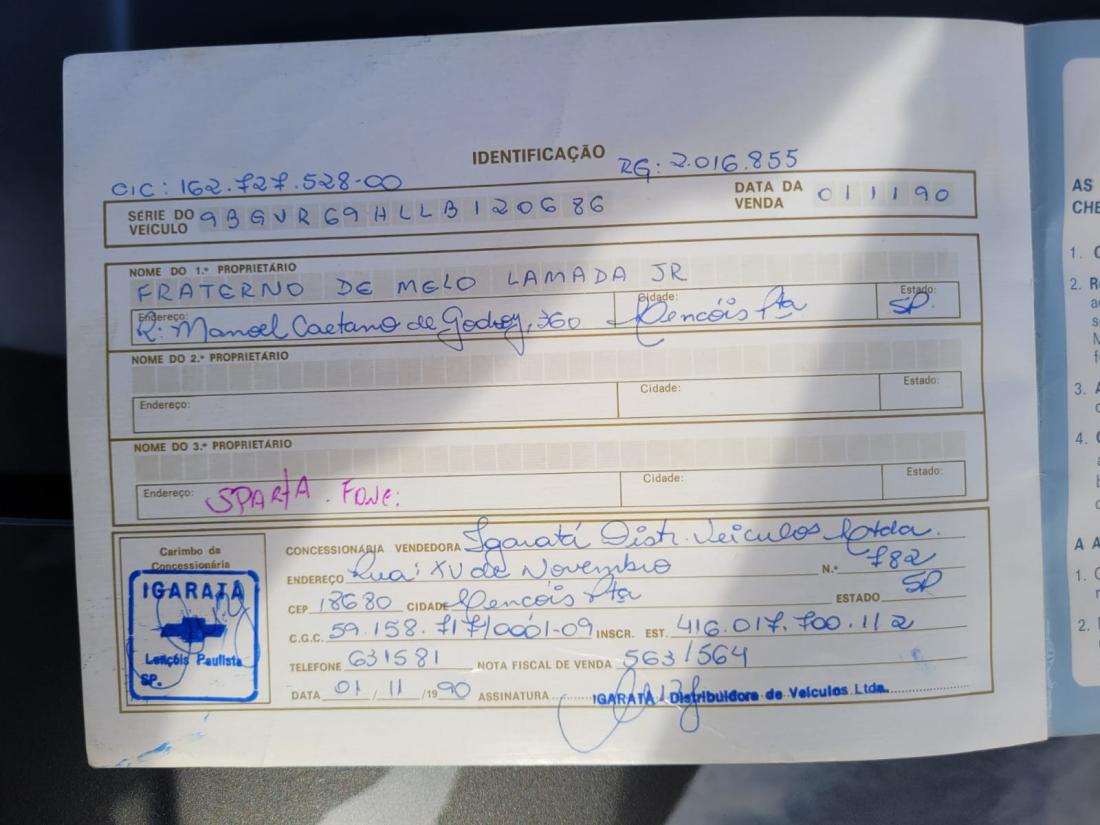 IDENTIFICAÇÃO
CIC: 162.727.528-00 RG: 2.016.855
SÉRIE DO VEÍCULO 9BGVR69HLLB120686 DATA DA VENDA 011190
NOME DO 1.º PROPRIETÁRIO
FRATERNO DE MELO LAMADA JR
Endereço: R: Manoel Caetano de Godoy, 360 Cidade: Lençóis Pta Estado: SP.
NOME DO 2.º PROPRIETÁRIO
Endereço: Cidade: Estado:
NOME DO 3.º PROPRIETÁRIO
Endereço: SPARTA. FONE: Cidade: Estado:
Carimbo da Concessionária
IGARATÁ
Lençóis Paulista
SP.
CONCESSIONÁRIA VENDEDORA Igaratá Distr. Veiculos Ltda.
ENDEREÇO Rua: XV de Novembro N.º 782
CEP 18680 CIDADE Lencóis Pta ESTADO SP
C.G.C. 59.158.717/0001-09 INSCR. EST. 416.017.700.112
TELEFONE 631581 NOTA FISCAL DE VENDA 563/564
DATA 01 / 11 /1990 ASSINATURA IGARATÁ Distribuidora de Veículos Ltda.
AS
CHE
1.
2.
3.
4.
A A
1.
2.